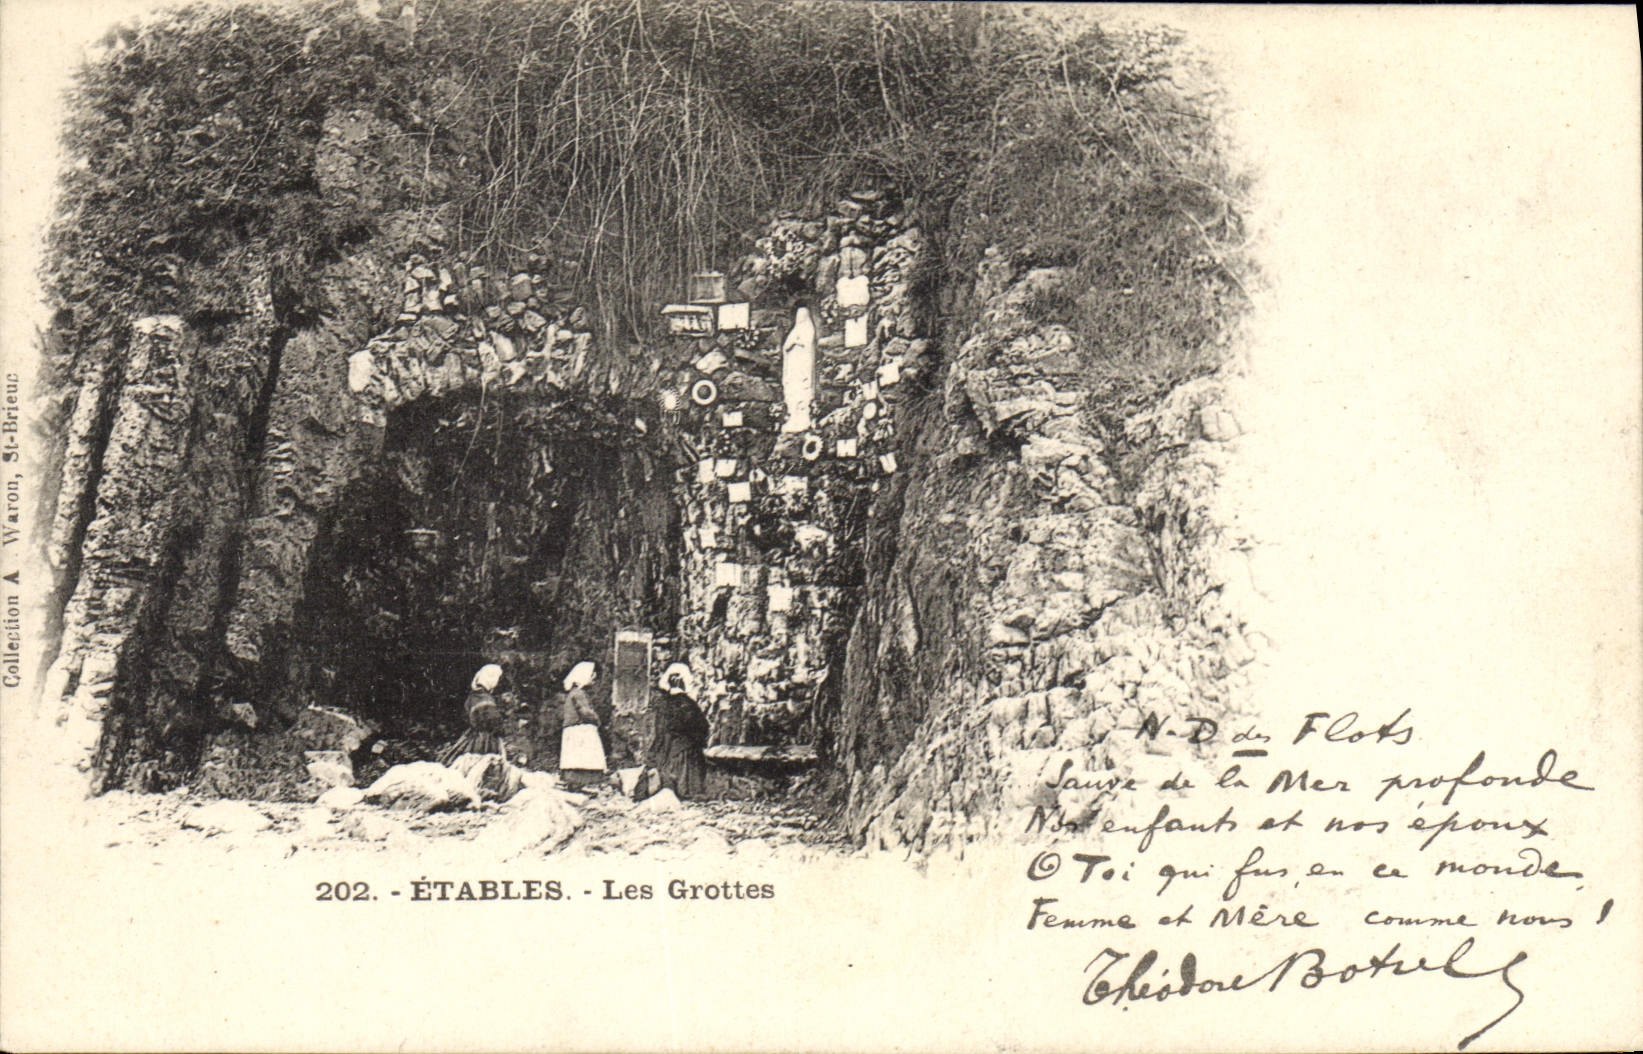 Collection A. Waron, St-Brieuc
202. - ÉTABLES. - Les Grottes
N.-D des Flots
Sauve de la Mer profonde
Nos enfants et nos époux
O Toi qui fus, en ce monde,
Femme et Mère comme nous !
Théodore Botrel